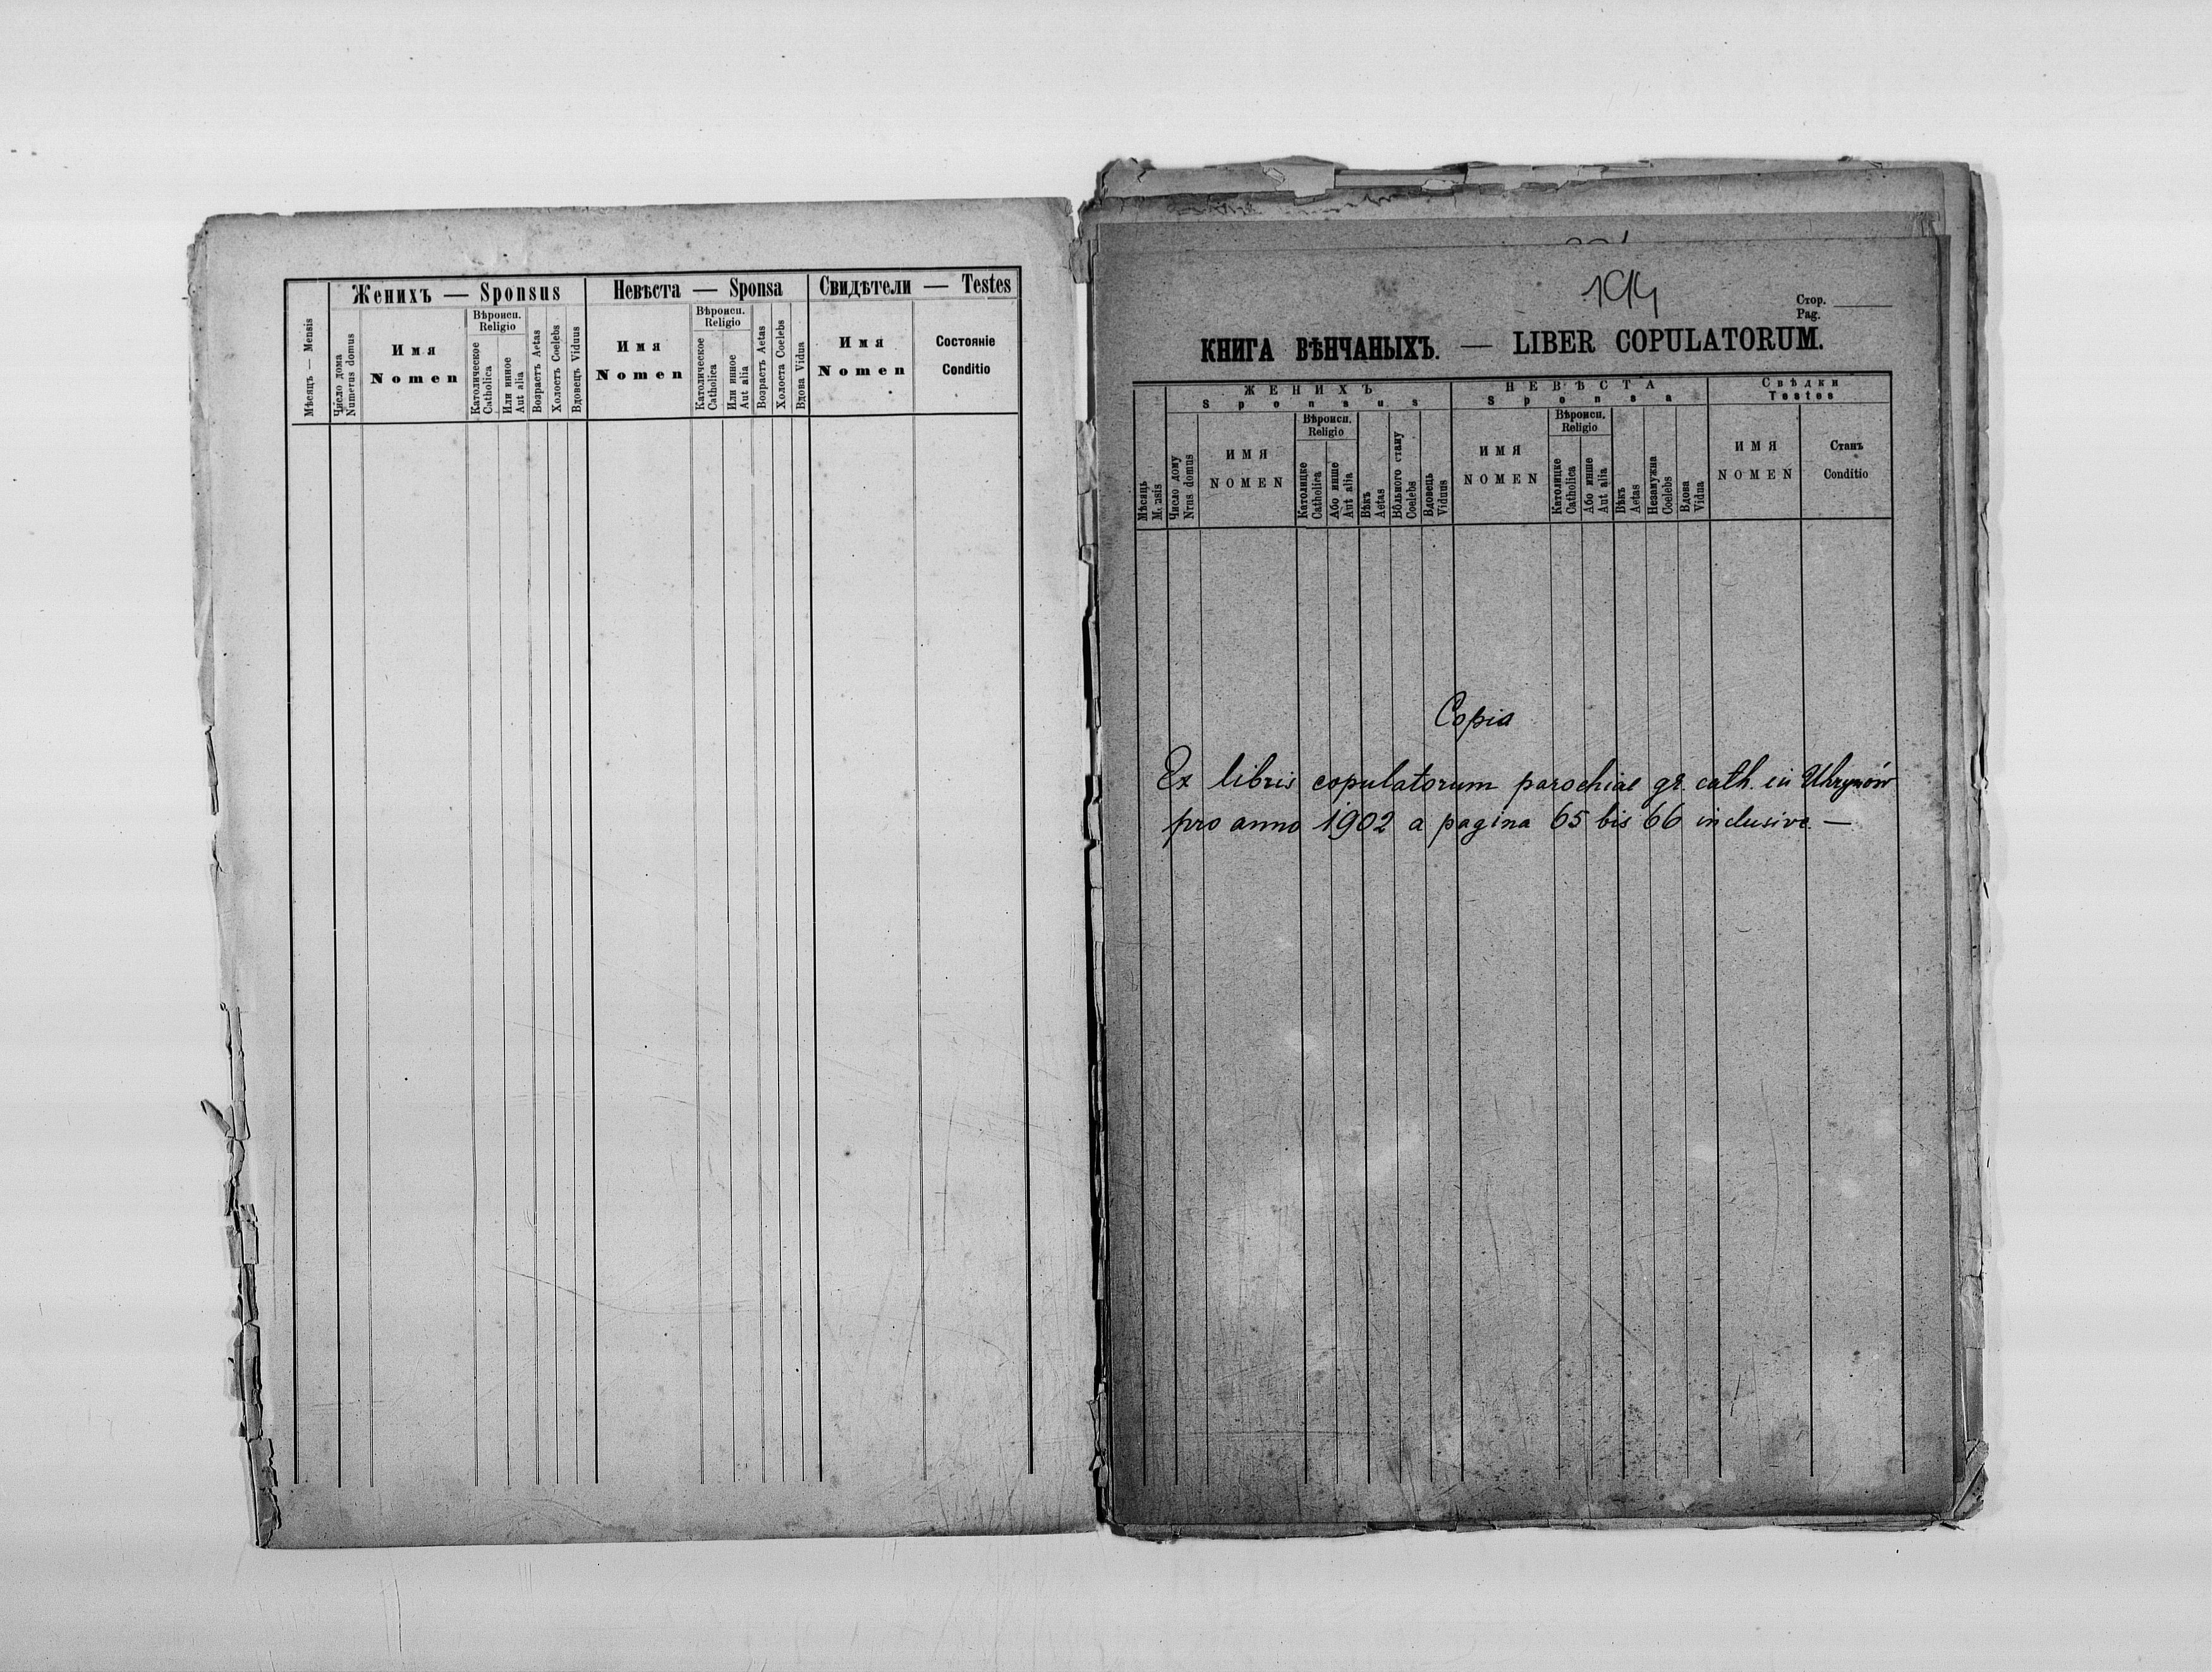 Женихъ — Sponsus
Невѣста — Sponsa
Свидѣтели — Testes
Мѣсяцъ — Mensis
Число дома
Numerus domus
Имя
Nomen
Вѣроисп.
Religio
Католическое
Catholica
Или инное
Aut alia
Возрастъ Aetas
Холостъ Coelebs
Вдовецъ Viduus
Имя
Nomen
Вѣроисп.
Religio
Католическое
Catholica
Или инное
Aut alia
Возрастъ Aetas
Холоста Coelebs
Вдова Vidua
Имя
Nomen
Состояніе
Conditio
Стор.
Pag.
КНИГА ВѢНЧАНЫХЪ. — LIBER COPULATORUM.
ЖЕНИХЪ
Sponsus
НЕВѢСТА
Sponsa
Свѣдки
Testes
Мѣсяць
M nsis
Число дому
Nrus domus
ИМЯ
NOMEN
Вѣроисп.
Religio
Католицке
Catholica
Або инше
Aut alia
Вѣкъ
Aetas
Вôльного стану
Coelebs
Вдовець
Viduus
ИМЯ
NOMEN
Вѣроисп.
Religio
Католицке
Catholica
Або инше
Aut alia
Вѣкъ
Aetas
Незамужна
Coelebs
Вдова
Vidua
ИМЯ
NOMEN
Станъ
Conditio
Copia
Ex libris copulatorum parochiae gr. cath. in Uhrynów
pro anno 1902 a pagina 65 bis 66 inclusive. —